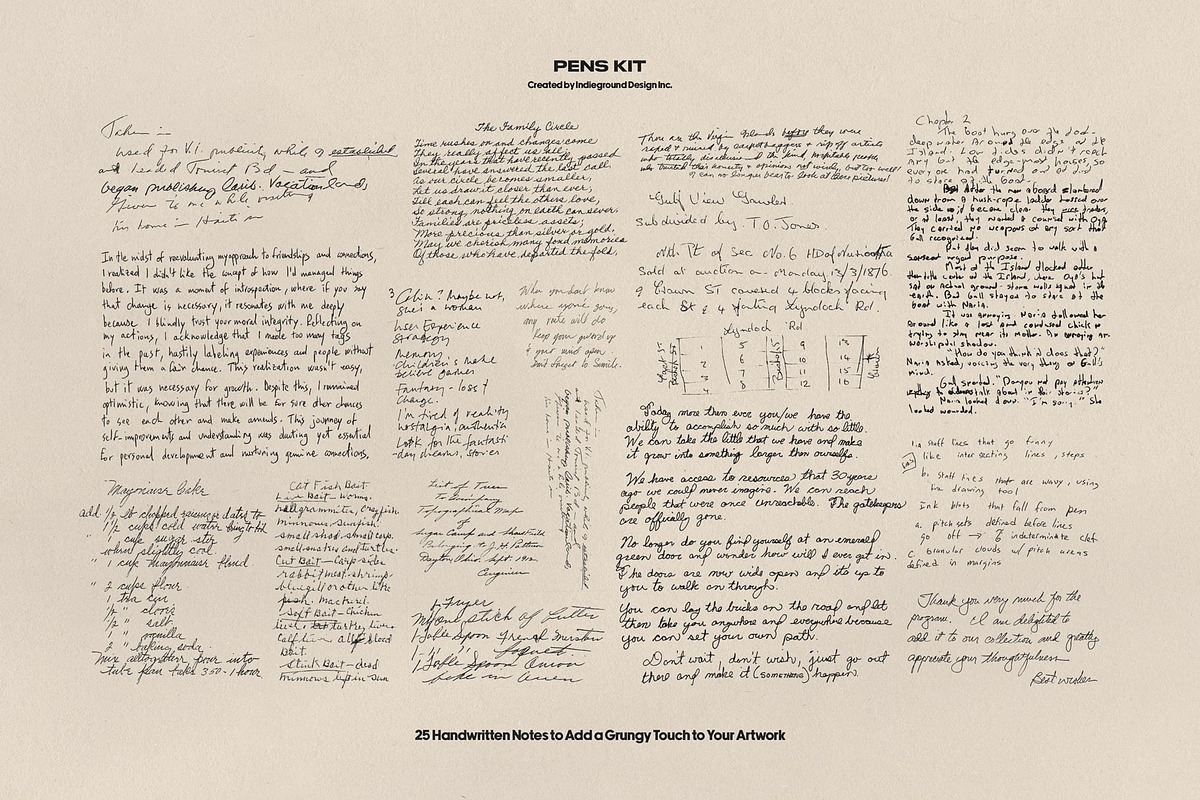 PENS KIT
Created by Indieground Design Inc.
Taken in
used for V.I. publicity while of established
and headed Tourist Bd — and
began publishing Caris. Vacationlands,
Given to me while visiting
his home in Haiti in
In the midst of reevaluating my approach to friendships and connections,
I realized I didn't like the concept of how I'd managed things
before. It was a moment of introspection, where if you say
that change is necessary, it resonates with me deeply
because I blindly trust your moral integrity. Reflecting on
my actions, I acknowledge that I made too many tags
in the past, hastily labeling experiences and people without
giving them a fair chance. This realization wasn't easy,
but it was necessary for growth. Despite this, I remained
optimistic, knowing that there will be for sure other chances
to see each other and make amends. This journey of
self-improvements and understanding was daunting yet essential
for personal development and nurturing genuine connections.
Mayonnaise Cake
add 1/2 lb chopped sausage dates to
1 1/2 cups cold water bring to boil
" 1 cup sugar stir
when slightly cool
" 1 cup Mayonnaise blend
" 2 cups flour
1 tea cin
1/2 " cloves
1/2 " salt
1 " vanilla
2 " baking soda
Mix altogether pour into
tube pan bake 350 - 1 hour
Cat Fish Bait
Live Bait - worms.
hellgrammites, crayfish.
minnows - sunfish.
small shad - small carp.
small suntry turtle.
Cut Bait - carp sides
rabbit meat - shrimp.
bluegill or other little
fish. mackerel.
Soft Bait - Chicken
liver, turkey liver
Calf liver all blood
Bait.
Stink Bait - dead
minnows left in sun
The Family Circle
Time rushes on and changes come
They really affect us all;
In the years that have recently passed
Several have answered the last call.
As our circle becomes smaller,
Let us draw it closer than ever;
Till each can feel the others love,
So strong, nothing on earth can sever.
Families are priceless assets;
More precious than silver or gold,
May we cherish many fond memories
Of those, who have departed the fold.
Colin? Maybe not,
She's a woman
User Experience
Strategy
Memory
Children's make
believe games
Fantasy - lose t
Change.
I'm tired of reality
nostalgia / authentic
Look for the fantasti
- day dreams, stories
When you don't know
where you're going,
any route will do
keep your guard up
& your mind open
don't forget to Smile.
Taken in
used for V.I. publicity while of established
and headed Tourist Bd — and
began publishing Caris. Vacationlands,
Given to me while visiting
his home in Haiti in
List of Trees
to Accompany
Topographical Map
of
Sugar Camp and
Belonging to J.H. Patterson
Dayton, Ohio. Sept. 1912
Engineer
1 Fryer
Melt one stick of butter
1 Table Spoon
1 Table Spoon Onion
bake in Oven
These are the Virgin Islands before they were
raped & ruined by carpetbaggers & rip off artists
who trusted their honesty & opinions not wisely, but too well!
I can no longer bear to look at these pictures!
Gulf View
Subdivided by T.O. Jones.
with Pt of Sec No. 6 HD of
Sold at auction on Monday, 13/3/1876.
9 Grawn ST covered 4 blocks facing
each St & 4 facing Lyndoch Rd.
Lyndoch Rd
1 5 9 13
2 6 10 14
3 7 11 15
4 8 12 16
Today more then ever you/we have the
ability to accomplish so much with so little.
We can take the little that we have and make
it grow into something larger than ourselfs.
We have access to resources that 30 years
ago we could never imagine. We can reach
people that were once unreachable. The gatekeepers
are officially gone.
No longer do you find yourself at an emerald
green door and wonder how will I ever get in.
The doors are now wide open and it's up to
you to walk on through.
You can lay the bricks on the road and let
then take you anywhere and everywhere because
you can set your own path.
Don't wait, don't wish, just go out
there and make it (SOMETHING) happen.
Chapter 2
The boat hung over the dead-
deep water around the edge of the
Island. Low docks didn't reach
Any but the edge-most houses, so
everyone had turned out and did
to stare at the boat.
After the men aboard clambered
down from a husk-rope ladder tossed over
the side it'd become clear they were traders,
or at least, they wanted a counsel with Oga.
They carried no weapons of any sort that
Gull recognized.
But they did seem to walk with a
sense of urgent purpose.
Most of the Island flocked after
them
boat with Naria.
It was annoying. Naria followed her
around like a lost and confused chick
trying to stay near its mother. An annoying and
worshipful shadow.
"How do you think it does that?"
Naria asked, voicing the very thing on Gull's
mind.
Naria looked down. "I'm sorry." She
looked wounded.
1.a staff lines that go funny
like intersecting lines, steps
b. staff lines that are wavy, using
line drawing tool
Ink blots that fall from pen
a. pitch sets defined before lines
go off → to indeterminate clef
c. Granular clouds w/ pitch areas
defined in margins
Thank you very much for the
program. I am delighted to
add it to our collection and greatly
appreciate your thoughtfulness
Best wishes
25 Handwritten Notes to Add a Grungy Touch to Your Artwork